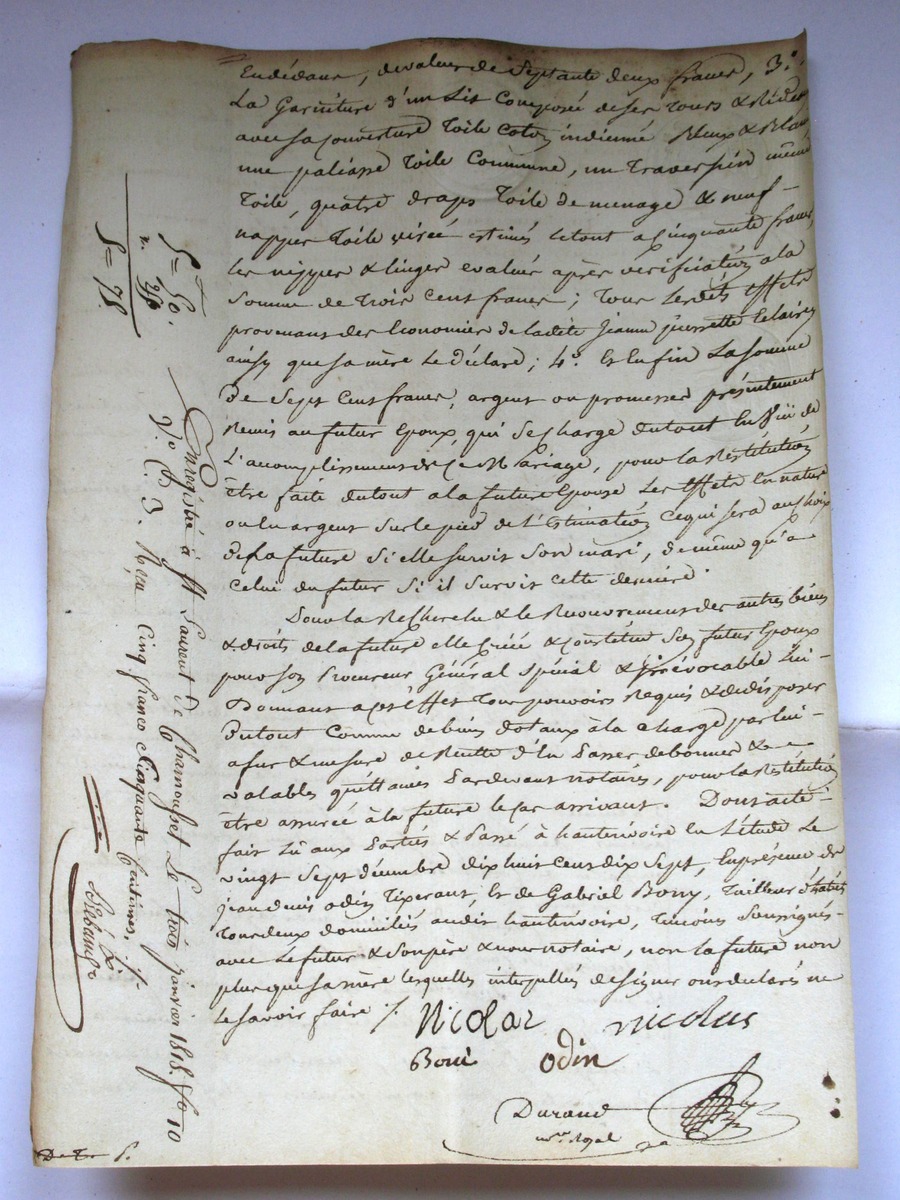 En dédans, de valeur de Septante deux francs, 3.°
La Garniture d'un Lit Composé de ses Tours & Rideaux
avec sa Couverture Toile Coton indienne Bleux & Blanc
une paliasse Toile Commune, un Traversin même
Toile, quatre draps Toile de menage & neuf
nappes Toile estimés le tout a Cinquante francs
les nippes & linges evalués après verification a la
Somme de Trois Cent francs; Tous Lesdits Effets
provenants des Economies de ladite Jeanne pierrette
ainsy que sa mère Le déclare; 4.° Et Enfin La Somme
De Sept Cent francs, argent ou promesses présentement
Remis au futur Epoux, qui Se Charge du tout
L'acomplissement de Ce Mariage, pour la Restitution
être faite du tout a la future Epouse Les Effets En nature
ou En argent Sur le pied de L'Estimation Ce qui Sera au Choix
De La future Si elle Survit Son mari, de même qu'a
Celui du futur Si il Survit Cette derniere.
Pour la Recherche & le Recouvrement des autres biens
& droits de la future elle Créé & Constitue Son futur Epoux
pour Son Procureur Général Spécial & irrévocable Lui
Donnant a Cet Effet Tous pouvoirs Requis & de disposer
Du tout Comme de biens dotaux à la Charge par lui
a fur & mesure de Recette d'En Passer de bonnes &
valables quittances Pardevant notaires, pour la Restitution
être assurée à la future le Cas arrivant. Dont acte
fait Lu aux Parties & Passé à hauterivoire En L'étude Le
vingt Sept décembre dix huit Cent dix Sept, En présence de
jean denis odin Tisserant, Et de Gabriel Bony, Tailleur d'habits
Tous deux domiciliés audit hauterivoire, Témoins Soussignés
avec Le futur & Son père & nous notaire, non la future non
plus que sa mère lesquelles interpellés de Signer ont declaré ne
Le Savoir faire ./.
Nicolas nicolas
Boni odin
Durand
n.re Royal
5= 50.
5= 78
Enregistré à St Laurent de Chamousset Le trois janvier 1818. f.o 10
V.o C. 3. Reçu Cinq francs Cinquante Centimes.